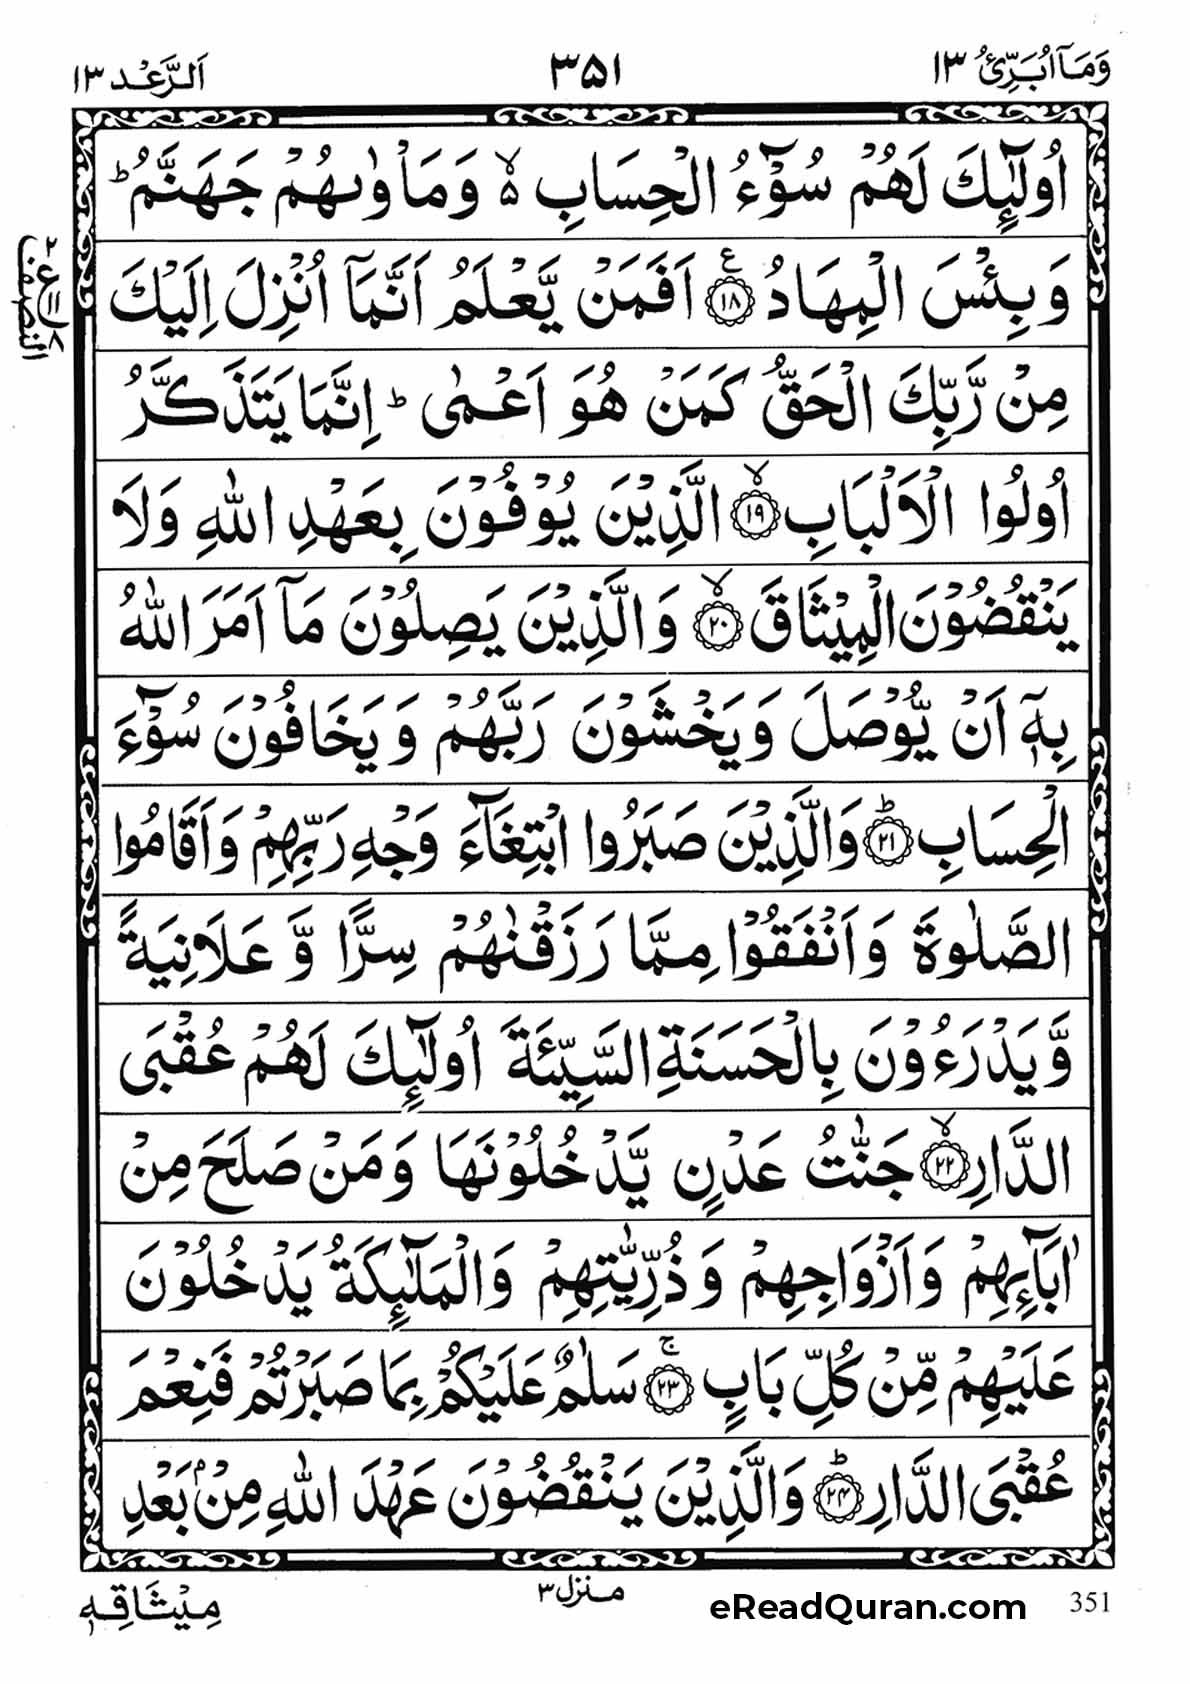 وَمَآ اُبَرِّئُ ١٣
٣٥١
اَلرَّعْد ١٣
اُولٰٓئِكَ لَهُمْ سُوْٓءُ الْحِسَابِ ۙ۬ وَمَاْوٰىهُمْ جَهَنَّمُ ؕ
وَبِئْسَ الْمِهَادُ ۧ‏﴿۱۸﴾‏ اَفَمَنْ يَّعْلَمُ اَنَّمَاۤ اُنْزِلَ اِلَيْكَ
٢
ع
٨
النصف
مِنْ رَّبِّكَ الْحَقُّ كَمَنْ هُوَ اَعْمٰى ؕ اِنَّمَا يَتَذَكَّرُ
اُولُوا الْاَلْبَابِ ۙ‏﴿۱۹﴾‏ الَّذِيْنَ يُوْفُوْنَ بِعَهْدِ اللّٰهِ وَلَا
يَنْقُضُوْنَ الْمِيْثَاقَ ۙ‏﴿۲۰﴾‏ وَالَّذِيْنَ يَصِلُوْنَ مَاۤ اَمَرَ اللّٰهُ
بِهٖۤ اَنْ يُّوْصَلَ وَيَخْشَوْنَ رَبَّهُمْ وَيَخَافُوْنَ سُوْٓءَ
الْحِسَابِ ؕ‏﴿۲۱﴾‏ وَالَّذِيْنَ صَبَرُوا ابْتِغَآءَ وَجْهِ رَبِّهِمْ وَاَقَامُوا
الصَّلٰوةَ وَاَنْفَقُوْا مِمَّا رَزَقْنٰهُمْ سِرًّا وَّ عَلَانِيَةً
وَّيَدْرَءُوْنَ بِالْحَسَنَةِ السَّيِّئَةَ اُولٰٓئِكَ لَهُمْ عُقْبَى
الدَّارِ ۙ‏﴿۲۲﴾‏ جَنّٰتُ عَدْنٍ يَّدْخُلُوْنَهَا وَمَنْ صَلَحَ مِنْ
اٰبَآئِهِمْ وَاَزْوَاجِهِمْ وَذُرِّيّٰتِهِمْ وَالْمَلٰٓئِكَةُ يَدْخُلُوْنَ
عَلَيْهِمْ مِّنْ كُلِّ بَابٍ ۚ‏﴿۲۳﴾‏ سَلٰمٌ عَلَيْكُمْ بِمَا صَبَرْتُمْ فَنِعْمَ
عُقْبَى الدَّارِ ؕ‏﴿۲۴﴾‏ وَالَّذِيْنَ يَنْقُضُوْنَ عَهْدَ اللّٰهِ مِنْۢ بَعْدِ
مِيْثَاقِهٖ
منزل ٣
eReadQuran.com
351